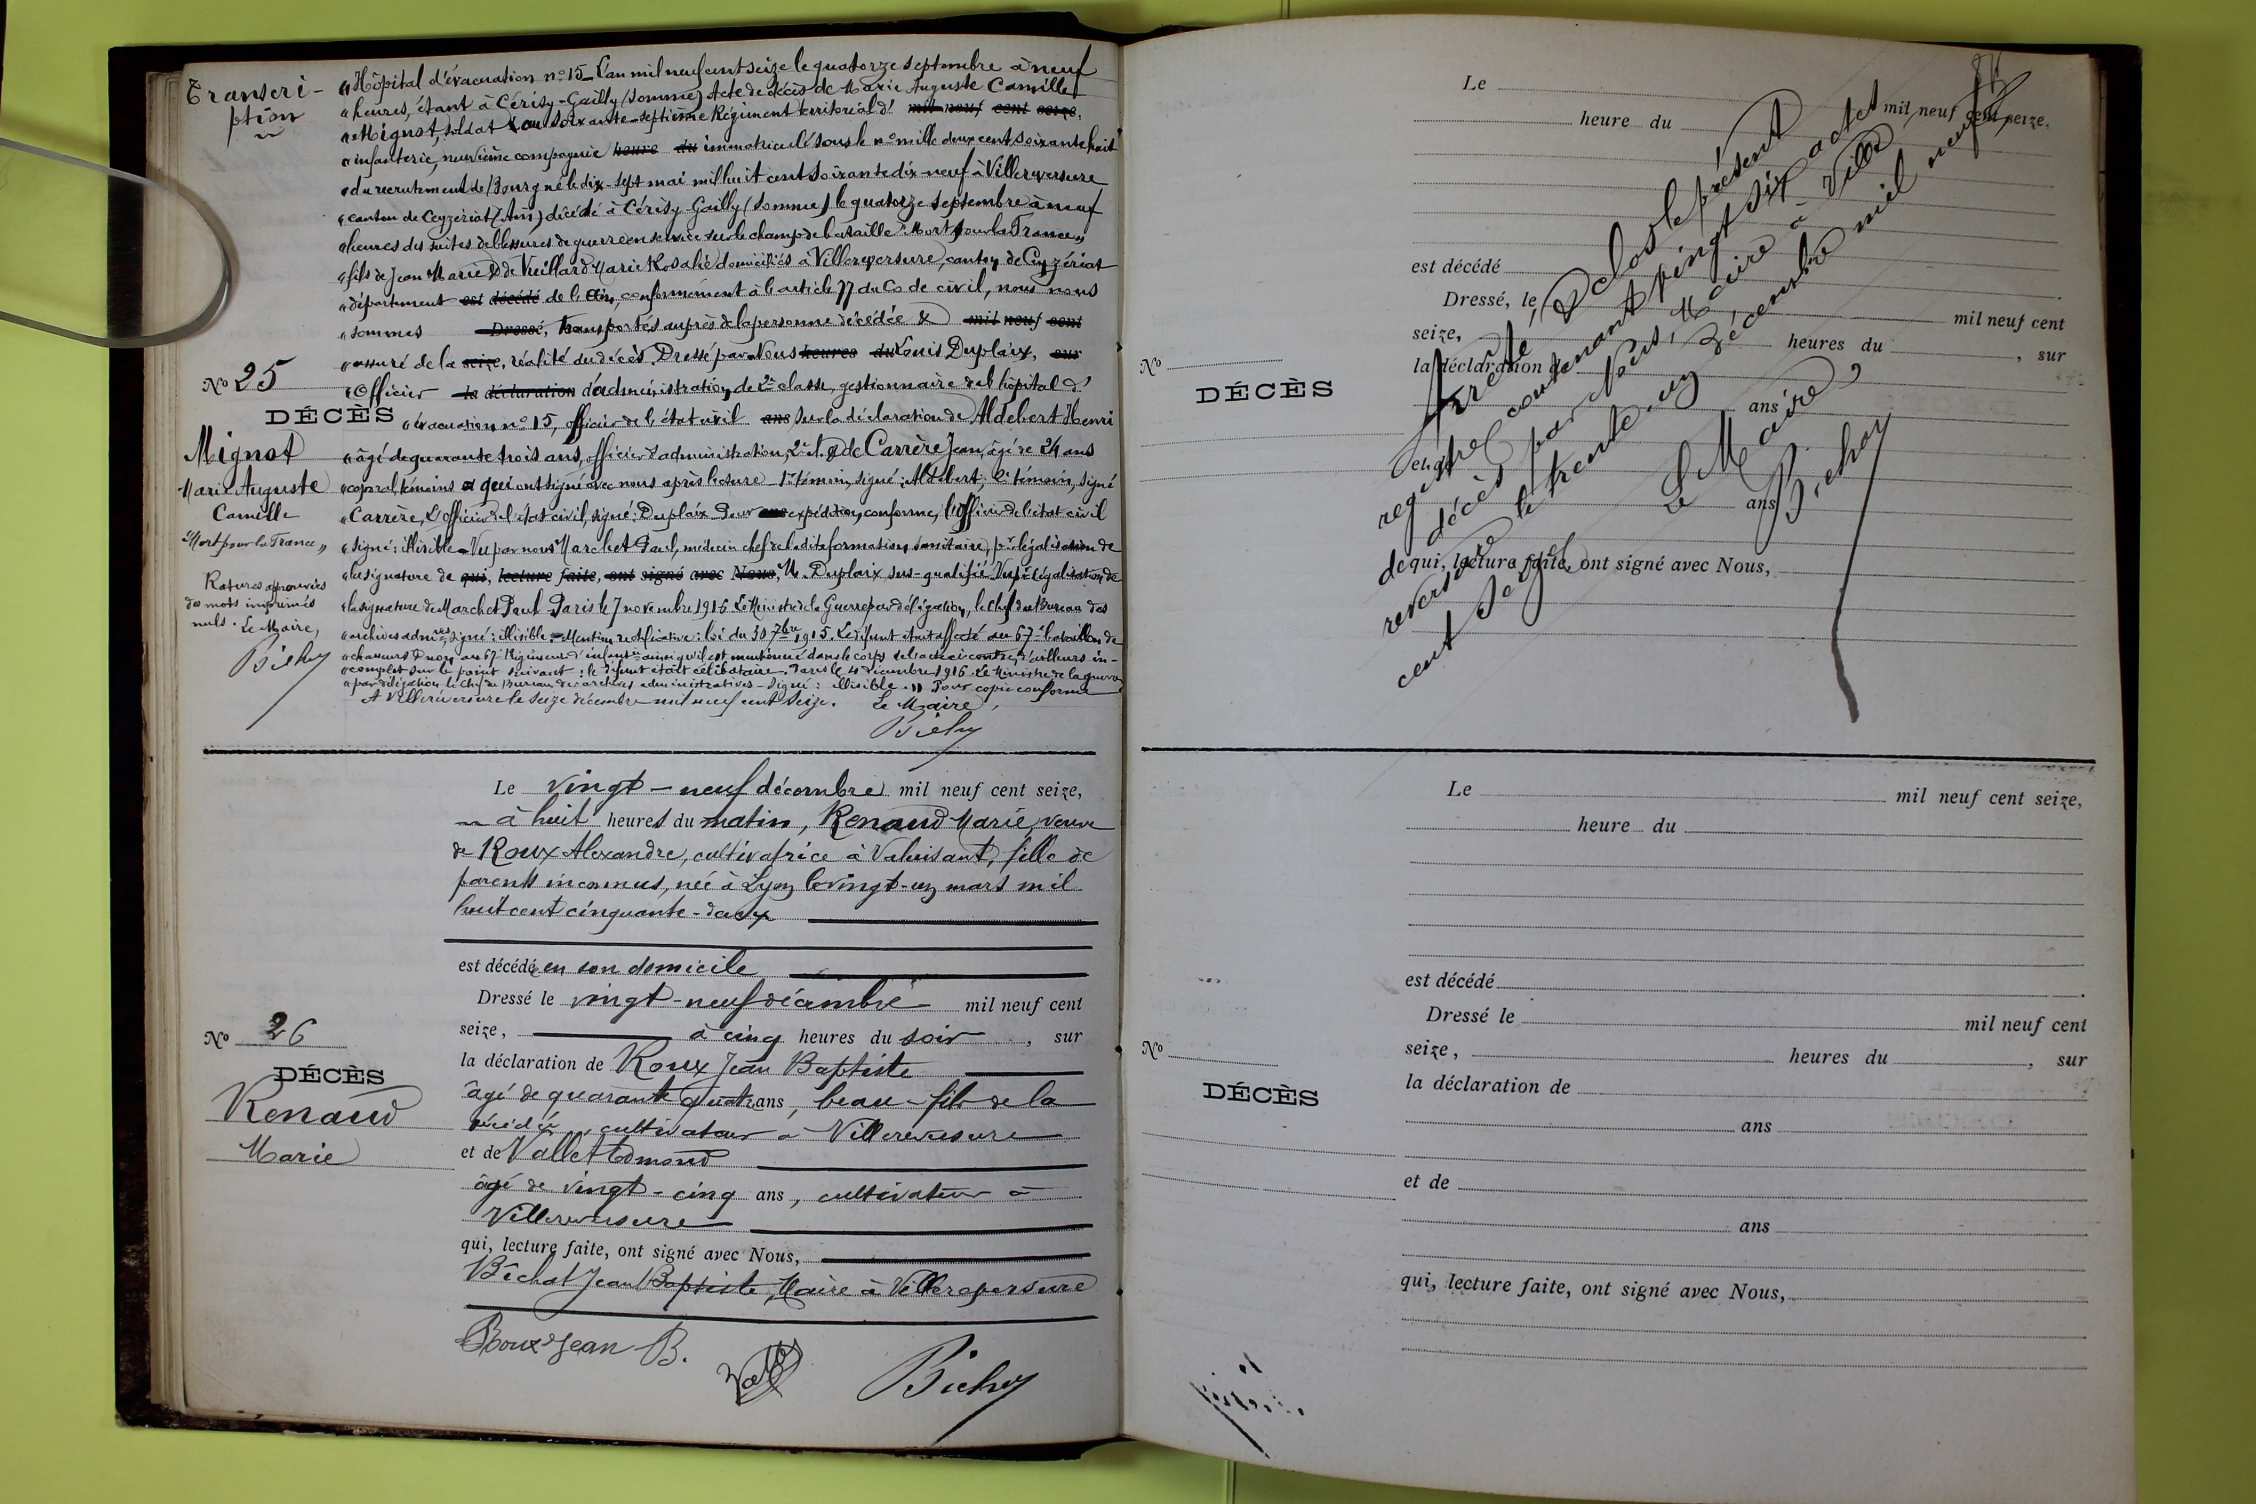 Transcri-
ption
« Hôpital d'évacuation nº 15_ L'an mil neuf cent seize le quatorze septembre à neuf
« heures, étant à Cérisy-Gailly (Somme) Acte de décès de Marie Auguste Camille
« Mignot, soldat au soixante-septième Régiment territorial d' mil neuf cent seize,
« infanterie, neuvième compagnie heure du immatriculé sous le nº mille deux cent soixante huit
« du recrutement de Bourg né le dix-sept mai mil huit cent soixante dix-neuf à Villereversure
« canton de Ceyzériat (Ain) décédé à Cérisy-Gailly (Somme) le quatorze septembre à neuf
« heures des suites de blessures de guerre en service sur le champ de bataille "Mort pour la France"
« fils de Jean Marie & de Vuillard Marie Rosalie domiciliés à Villereversure, canton de Ceyzériat
« département est décédé de l'Ain, conformément à l'article 77 du Co de civil, nous nous
« sommes Dressé, transportés auprès de la personne décédée & mil neuf cent
« assuré de la seize, réalité du décès. Dressé par Nous heures du Louis Duplaix, sur
« Officier la déclaration d'administration de 2e classe, gestionnaire de l'hôpital d'
« évacuation nº 15, officier de l'état civil ans sur la déclaration de Aldebert Henri
« âgé de quarante trois ans, officier d'administration, 2e & de Carrère Jean, âgé de 24 ans
« caporal, témoins qui ont signé avec nous après lecture 1er témoin, signé : Aldebert, 2e témoin, signé
« Carrère, L'officier de l'état civil, signé : Duplaix Pour expédition conforme, l'officier de l'état civil
« signé : illisible - Vu par nous Marchet Paul, médecin chef de ladite formation sanitaire, pr légalisation de
« la signature de qui, lecture faite, ont signé avec Nous, M. Duplaix sus-qualifié. Vu pr légalisation de
« la signature de Marchet Paul - Paris le 7 novembre 1916 Le Ministre de la Guerre par délégation, le chef du Bureau des
« archives admves, signé : illisible. Mention rectificative : loi du 30 7bre 1915. Le défunt était affecté au 67e bataillon de
« chasseurs & non au 67e Régiment d'infanterie ainsi qu'il est mentionné dans le corps de l'acte ci contre, d'ailleurs in-
« complet sur le point suivant : le défunt était célibataire. Paris le 4 décembre 1916. Le Ministre de la guerre
« par délégation le chef du Bureau des archives administratives - Signé : illisible. » Pour copie conforme
A Villereversure le seize décembre mil neuf cent seize. Le Maire,
Bichaz
Nº 25
DÉCÈS
Mignot
Marie Auguste
Camille
"Mort pour la France"
Ratures approuvées
des mots imprimés
nuls. Le Maire,
Le vingt-neuf décembre mil neuf cent seize,
à huit heures du matin, Renaud Marie, veuve
de Roux Alexandre, cultivatrice à Valuisant, fille de
parents inconnus, née à Lyon le vingt-un mars mil
huit cent cinquante-deux
est décédée en son domicile
Dressé le vingt-neuf décembre mil neuf cent
seize, à cinq heures du soir, sur
la déclaration de Roux Jean Baptiste
âgé de quarante quatre ans, beau-fils de la
décédée, cultivateur à Villereversure
et de Vallet Edmond
âgé de vingt-cinq ans, cultivateur à
Villereversure
qui, lecture faite, ont signé avec Nous,
Béchat Jean Baptiste, Maire à Villereversure
Roux Jean B.
Nº 26
DÉCÈS
Renaud
Marie
Le mil neuf cent seize,
heure du
est décédé
Dressé, le mil neuf cent
seize, heures du , sur
la déclaration de
ans
et de
ans
de qui, lecture faite, ont signé avec Nous,
Nº
DÉCÈS
Arrêté, & clos le présent
registre contenant vingt six actes
décès par Nous, Maire à Ville
reversure le trente-un décembre mil neuf
cent seize
Le Maire,
Le mil neuf cent seize,
heure du
est décédé
Dressé le mil neuf cent
seize, heures du , sur
la déclaration de
ans
et de
ans
qui, lecture faite, ont signé avec Nous,
Nº
DÉCÈS